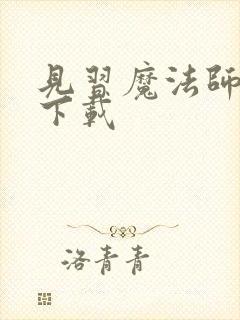 見習魔法師
下載
洛青青